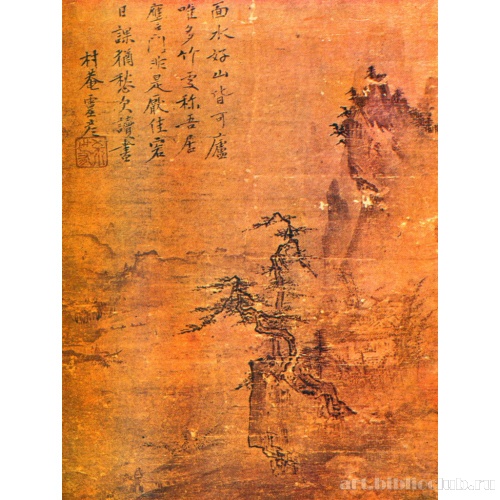 面水好山皆可廬
唯多竹處称吾居
門非是嚴佳客
日課猶愁欠讀書
村菴靈彦
art.biblioclub.ru